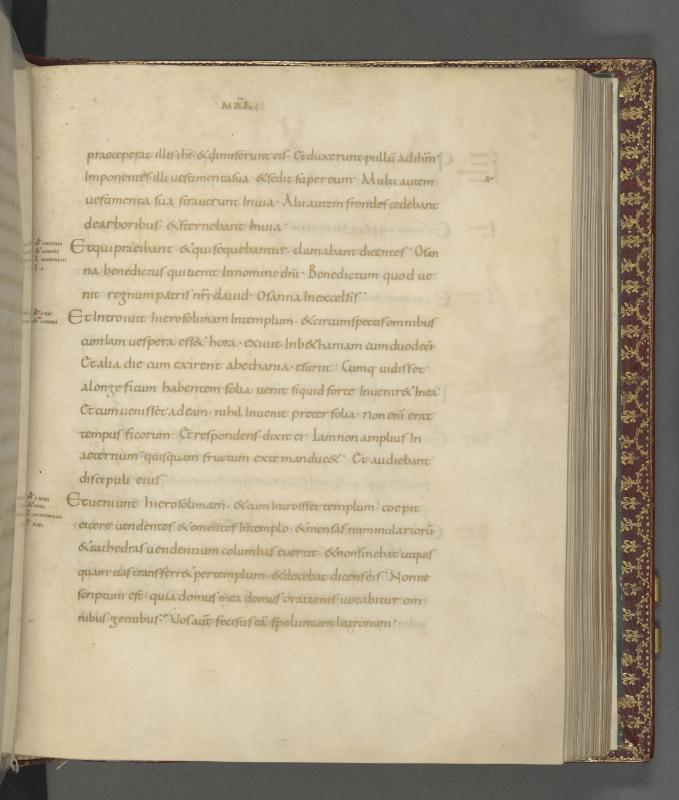 MAR
praeceperat illis ihs · & dimiserunt eis · Et duxerunt pullū ad ihm̄ ·
Imponentes illi uestimenta sua · & sedit super eum · Multi autem
uestimenta sua strauerunt In uia · Alii autem frondes cedebant
de arboribus · & sternebant In uia ·
Et qui praeibant · & qui sequebantur · clamabant dicentes · Osan
na benedictus qui uenit In nomine dn̄i · Benedictum quod ue
nit regnum patris nr̄i dauid · Osanna In excelsis ·
Et Introiuit hierosolimam In templum · & circumspectis omnibus
cum Iam uespera ess& hora · exiuit In b&haniam cum duodeci ·
Et alia die cum exirent a bethania · esuriit · Cumq uidisset
a longe ficum habentem folia · uenit si quid forte Inuenir& In ea ·
Et cum uenisset ad eam · nihil Inuenit preter folia · Non em̄ erat
tempus ficorum · Et respondens · dixit ei · Iam non amplius In
aeternum · quisquam fructum ex te manduc& · Et audiebant
discipuli eius ·
Et ueniunt hierosolimam̄ · & cum Introisset templum · coepit
eicere uendentes & ementes In templo · & mensas nummulariorū
& cathedras uendentium columbas euertit · & non sinebat ut quis
quam uas transferr& per templum · & docebat dicens eis · Nonne
scriptum est · quia domus mea domus orationis uocabitur om
nibus gentibus · Vos aut̄ fecistis eā speluncam latronum ·